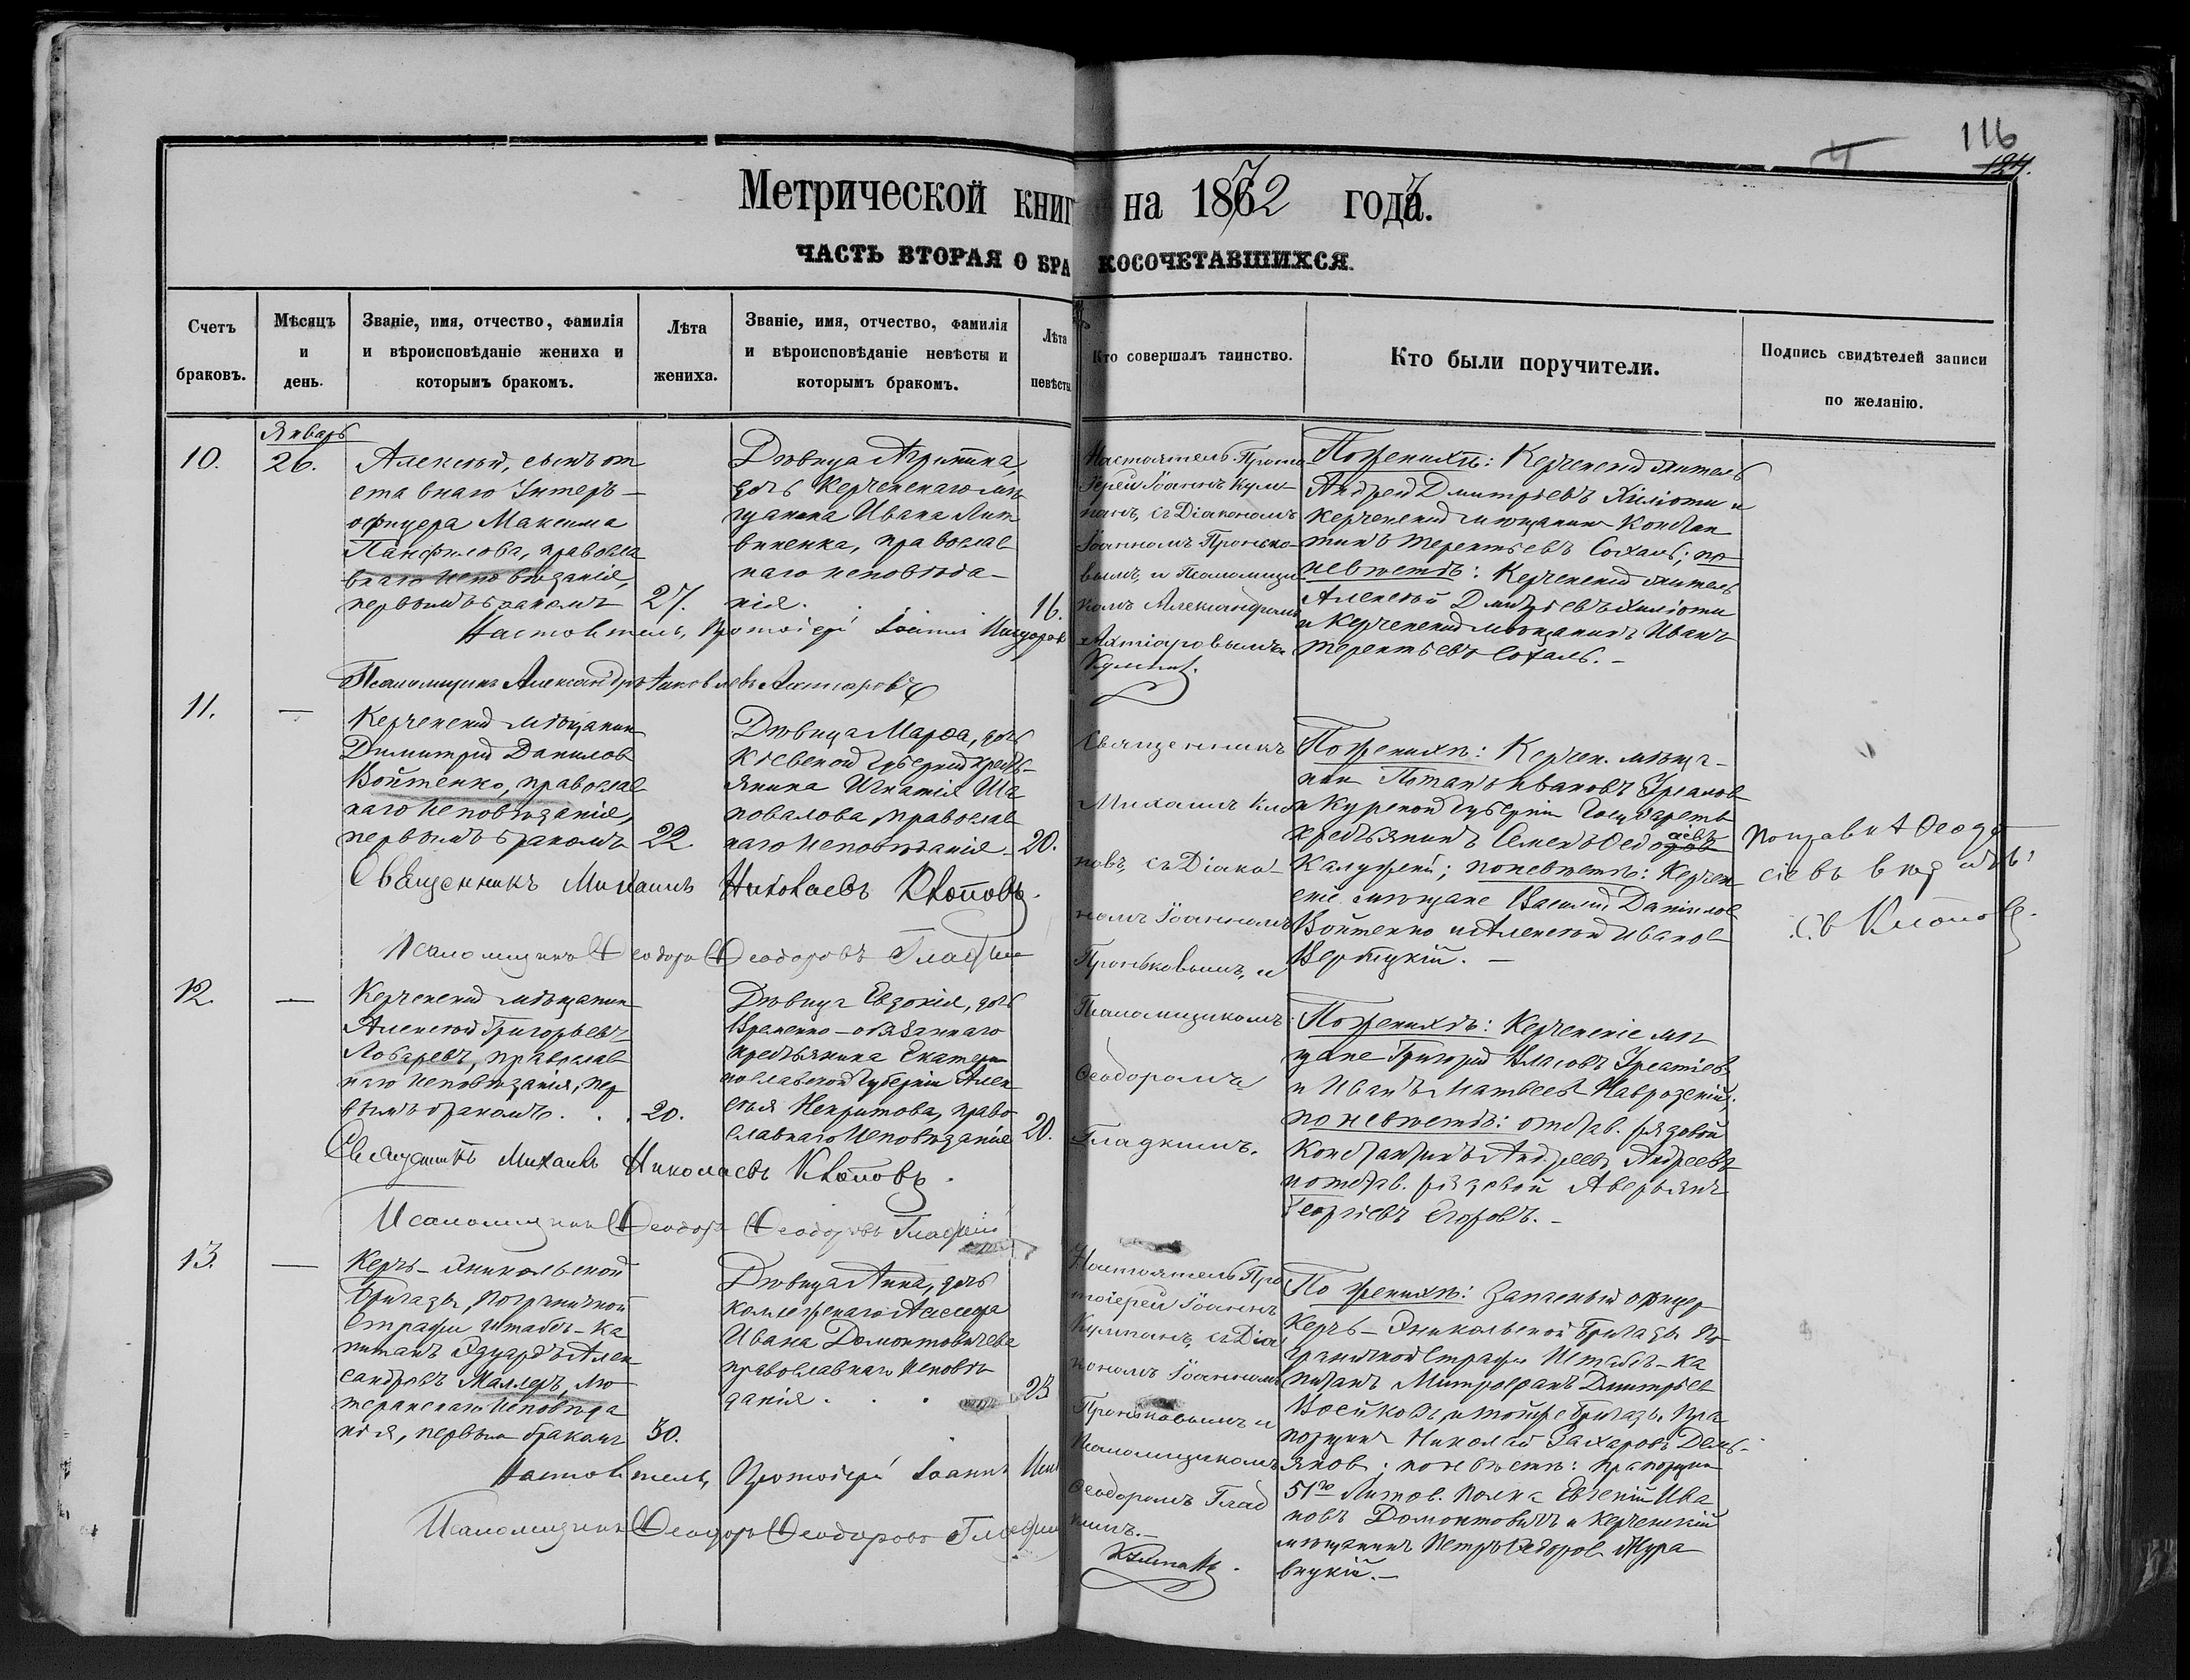 116
124.
Метрической книг на 1872 годъ.
ЧАСТЬ ВТОРАЯ О БРА КОСОЧЕТАВШИХСЯ.
Счетъ браковъ.
Мѣсяцъ и день.
Званіе, имя, отчество, фамилія
и вѣроисповѣданіе жениха и
которымъ бракомъ.
Лѣта
жениха.
Званіе, имя, отчество, фамилія
и вѣроисповѣданіе невѣсты и
которымъ бракомъ.
Лѣта
невѣсты
Кто совершалъ таинство.
Кто были поручители.
Подпись свидѣтелей записи
по желанію.
10.
Январь
26.
Алексѣй, сынъ от
ставнаго Унтеръ-
офицера Максима
Панфилова, правосла
внаго исповѣданія,
первымъ бракомъ
27.
Дѣвица Агрипина
дочь Керченскаго мѣ
щанина Ивана Лит
виненка, православ
наго исповѣда-
нія.
16.
Настоятель Прото
Іерей Іоаннъ Кум-
панъ, съ Діакономъ
Іоанномъ Пронько-
вымъ, и Псаломщи
комъ Александромъ
Ахтіаровымъ.
По женихѣ: Керченскій житель
Андрей Дмитріевъ Хиліоти и
Керченскій мѣщанинъ Констан
тинъ Терентьевъ Сохань; по
невѣстѣ: Керченскій житель
Алексѣй Дмитріевъ Хиліоти
и Керченскій мѣщанинъ Иванъ
Терентьевъ Сохань. -
Настоятель, Протоіерей Іоаннъ
Псаломщикъ Александръ Яковлевъ Ахтіаровъ
11.
—
Керченскій мѣщанинъ
Димитрій Даниловъ
Войтенко, православ
наго исповѣданія,
первымъ бракомъ
22.
Дѣвица Марѳа, дочь
Кіевской губерніи кресть-
янина Игнатія Ша
повалова, православ
наго исповѣданія
20.
Священникъ
Михаилъ Кло
повъ, съ Діако-
номъ Іоанномъ
Проньковымъ, и
Псаломщикомъ
Ѳеодоромъ
Гладкимъ.
По женихѣ: Керчен. мѣща-
нинъ Потапъ Ивановъ
и Курской губерніи Государств
крестьянинъ Семенъ
по невѣстѣ: Керчен
скіе мѣщане Василій Даниловъ
Войтенко и Алексѣй Ивановъ
Вербицкій. -
Священникъ Михаилъ Николаевъ Клоповъ.
Псаломщикъ Ѳеодоръ Ѳеодоровъ Гладкій
12.
—
Керченскій мѣщанинъ
Алексѣй Григорьевъ
Лобаревъ, православ
наго исповѣданія, пер
вымъ бракомъ.
20.
Дѣвица Евдокія, дочь
Временно-обязаннаго
крестьянина Екатери
нославской Губерніи Алек
сѣя Некритова, право
славнаго исповѣданія
20.
По женихѣ: Керченскіе мѣ
щане Григорій Власовъ
и Иванъ Матвеевъ Навродскій;
по невѣстѣ: отстав. рядовой
Константинъ Андреевъ Андреевъ
и отстав. рядовой Аверьянъ
Георгіевъ Егоровъ. -
Священникъ Михаилъ Николаевъ Клоповъ.
Псаломщикъ Ѳеодоръ Ѳеодоровъ Гладкій
13.
—
Керчь-Еникольской
Бригады, Пограничной
Стражи Штабсъ-Ка
питанъ Эдуардъ Алек
сандровъ Маллеръ, Лю
теранскаго исповѣда
нія, первымъ бракомъ
30.
Дѣвица Анна, дочь
Коллежскаго Асесора
Ивана Домонтовичева
православнаго исповѣ
данія
23
Настоятель Про
тоіерей Іоаннъ
Кумпанъ, съ Діа
кономъ Іоанномъ
Проньковымъ и
Псаломщикомъ
Ѳеодоромъ Глад
кимъ. -
По женихѣ: Запасный офицеръ
Керчь-Эникольской Бригады По
граничной Стражи Штабсъ-Ка
питанъ Митрофанъ Дмитріев
Воейковъ, и тойже Бригады, Пра
порщикъ Николай Захаровъ
по невѣстѣ: прапорщикъ
51го Литов. полка Евгеній Ива
новъ Домонтовичъ и Керченскій
мѣщанинъ Петръ Ѳедоровъ Жура
вицкій. -
Настоятель, Протоіерей Іоаннъ
Псаломщикъ Ѳеодоръ Ѳеодоровъ